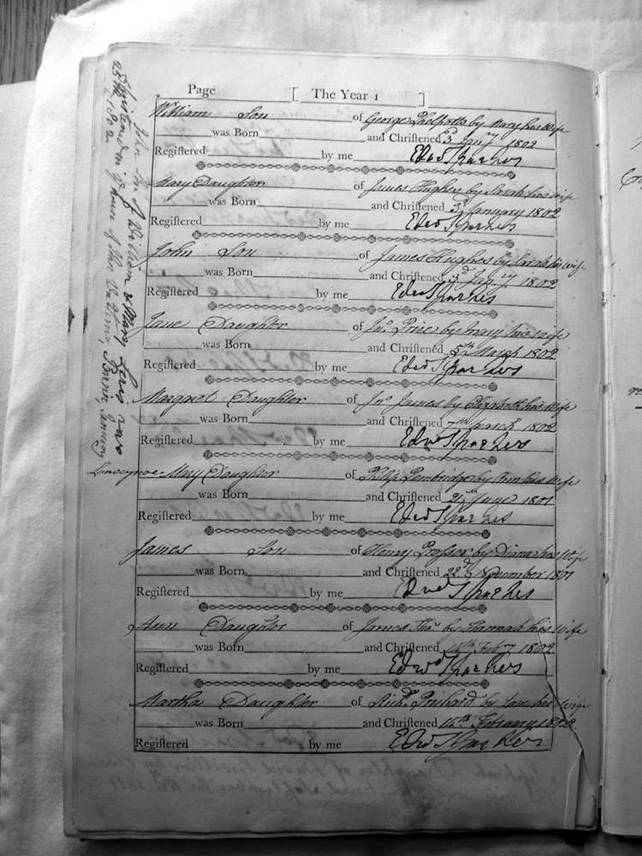 Page [ The Year 1 ]
William Son of George Philpotts by Mary his Wife
was Born and Christened 3d Jany 1802
Registered by me Edwd Sparkes
Mary Daughter of James Hughes by Sarah his Wife
was Born and Christened 3d January 1802
Registered by me Edwd Sparkes
John Son of James Hughes by Sarah his Wife
was Born and Christened 3d Jany 1802
Registered by me Edwd Sparkes
Jane Daughter of Jno Price by Mary his Wife
was Born and Christened 5th March 1802
Registered by me Edwd Sparkes
Margaret Daughter of Jno James by Elizabeth his Wife
was Born and Christened 7th March 1802
Registered by me Edwd Sparkes
Mary Daughter of Philip Pembridge by Ann his Wife
was Born and Christened 21st June 1801
Registered by me Edwd Sparkes
James Son of Henry Prosser by Diana his Wife
was Born and Christened 22d November 1801
Registered by me Edwd Sparkes
Ann Daughter of James Thos by Hannah his Wife
was Born and Christened 14th Feby 1802
Registered by me Edwd Sparkes
Martha Daughter of Richd Prichard by Jane his Wife
was Born and Christened 14th February 1802
Registered by me Edwd Sparkes
John Son of William & Mary was
Christened
1802